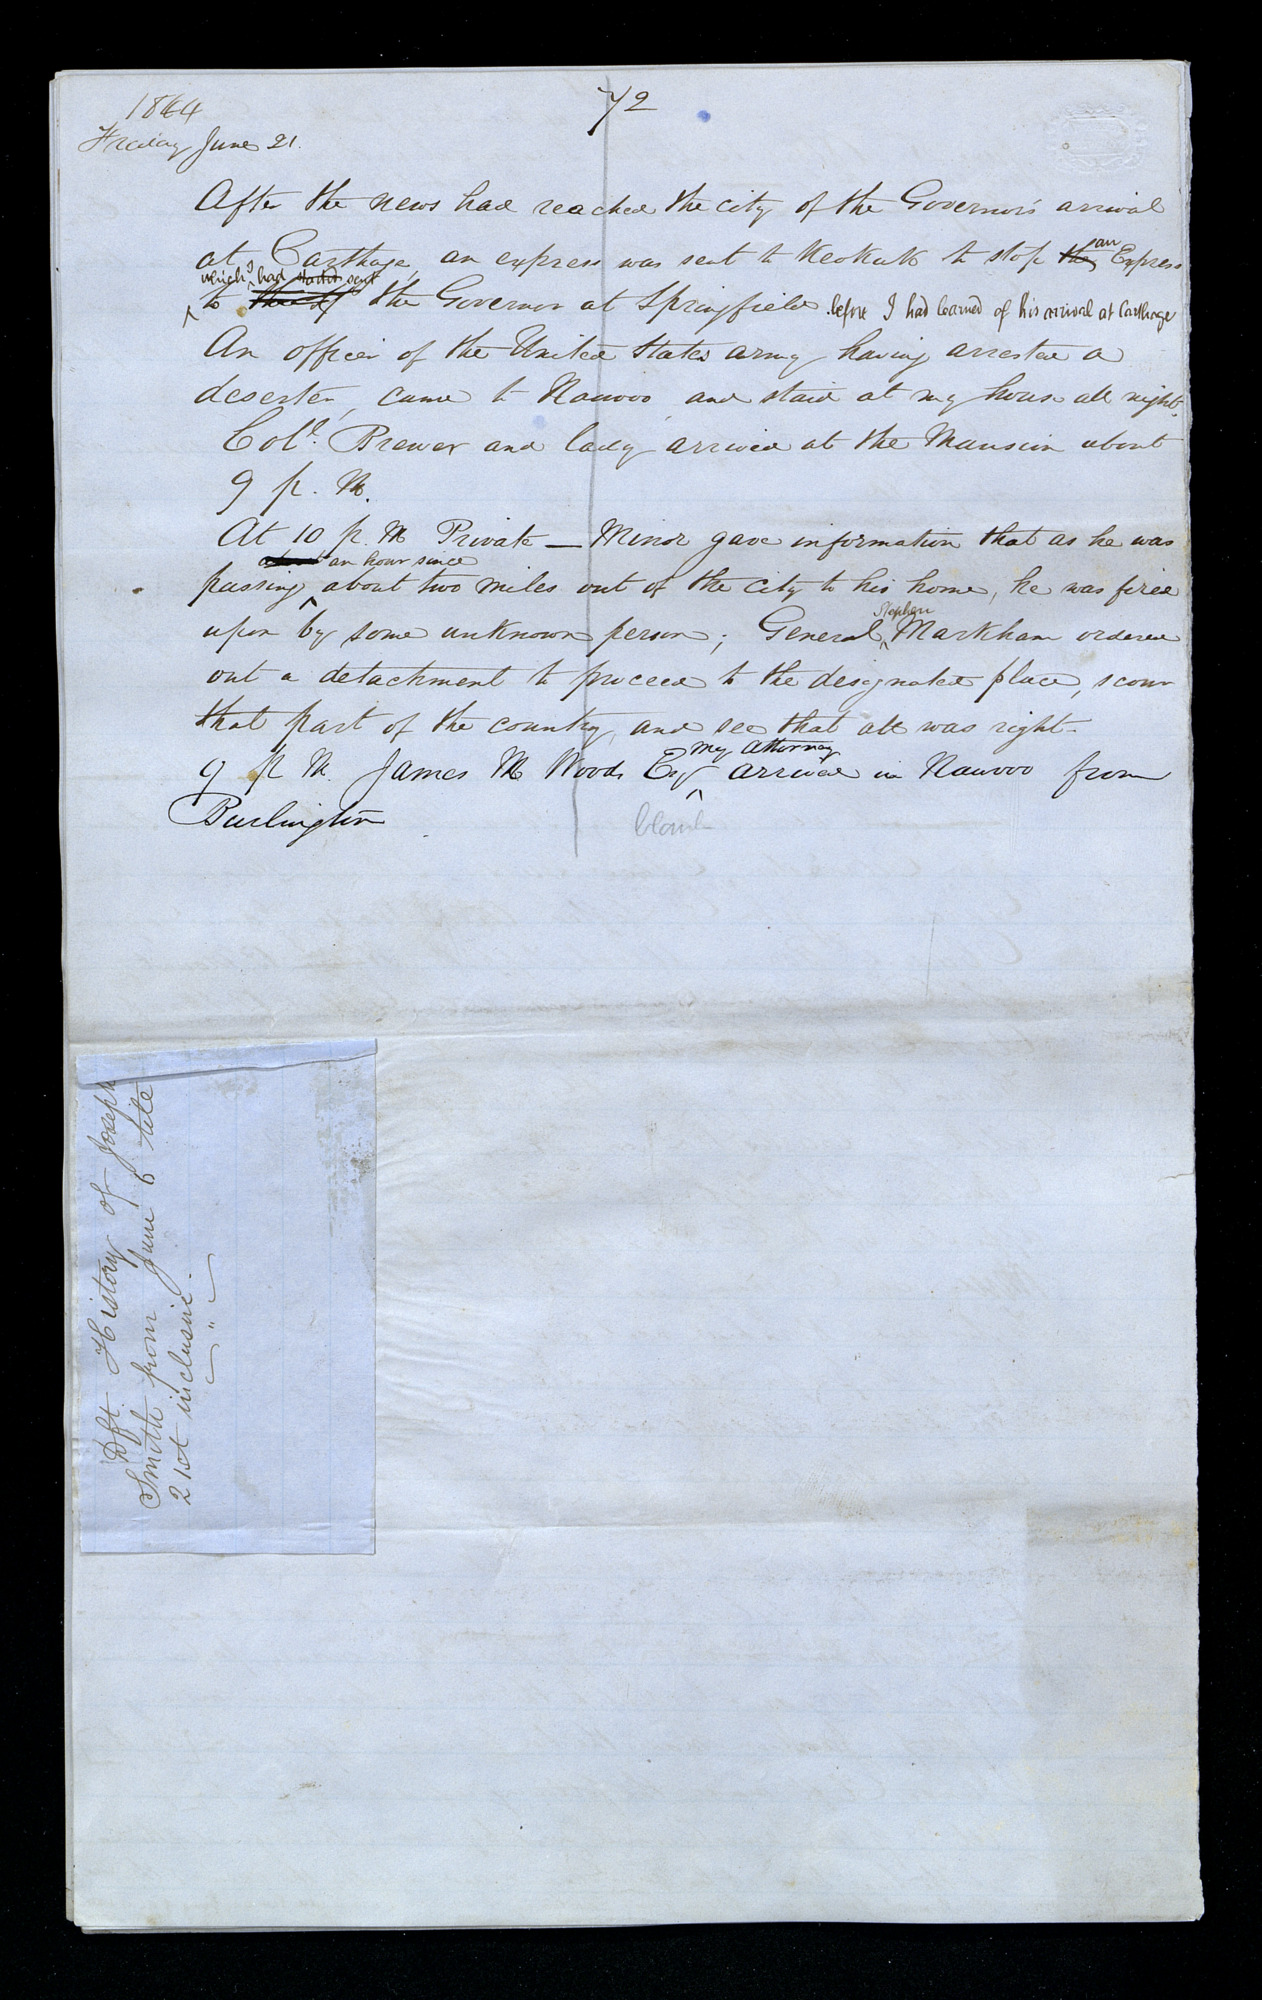 72
1844
Friday June 21.
After the news had reached the city of the Governor's arrival
at Carthage, an express was sent to Keokuk to stop the an Express
which I had started sent
to the Governor at Springfield before I had learned of his arrival at Carthage
An officer of the United States army having arrested a
deserter, came to Nauvoo and staid at my house all night.
Col. Brewer and lady arrived at the Mansion about
9 p. M.
At 10 p. M Private — Minor gave information that as he was
about an hour since
passing about two miles out of the city to his home, he was fired
upon by some unknown person; General Stephen Markham ordered
out a detachment to proceed to the designated place, scour
that part of the country, and see that all was right-
9 p M. James W Woods Esq my attorney arrived in Nauvoo from
Burlington
blank
Dft. History of Joseph
Smith from June 6 till
21st inclusive.